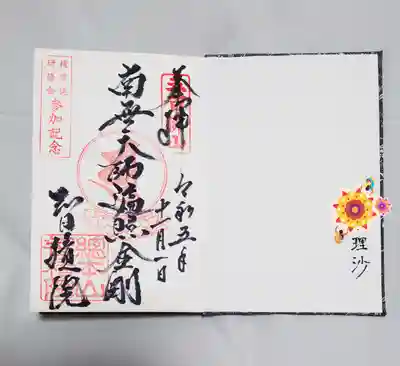 理沙
奉拝
令和五年
十月一日
南無大師遍照金剛
智積院
總本山
檀信徒
研修会
参加記念